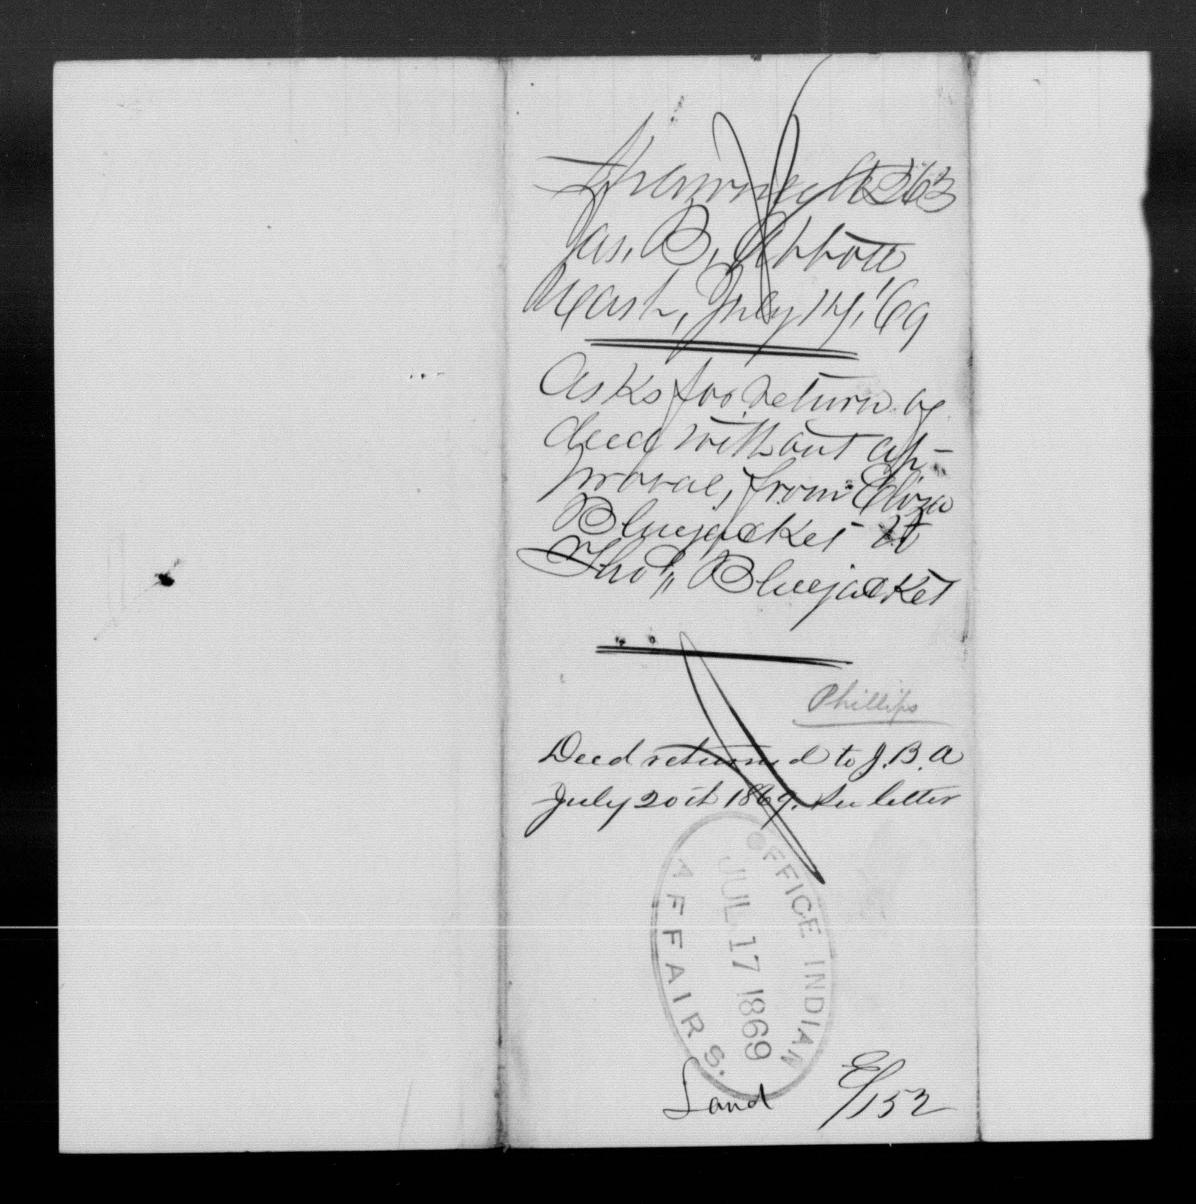 Shawnee A 263
Jas. B. Abbott
Wash, July 14, '69
Asks for return of
deed without ap-
proval, from Eliza
Bluejacket to
Thos, Bluejacket
Phillips
Deed returned to J. B. A
July 20th 1869. See letter
OFFICE INDIAN AFFAIRS.
JUL 17 1869
Land
E/152